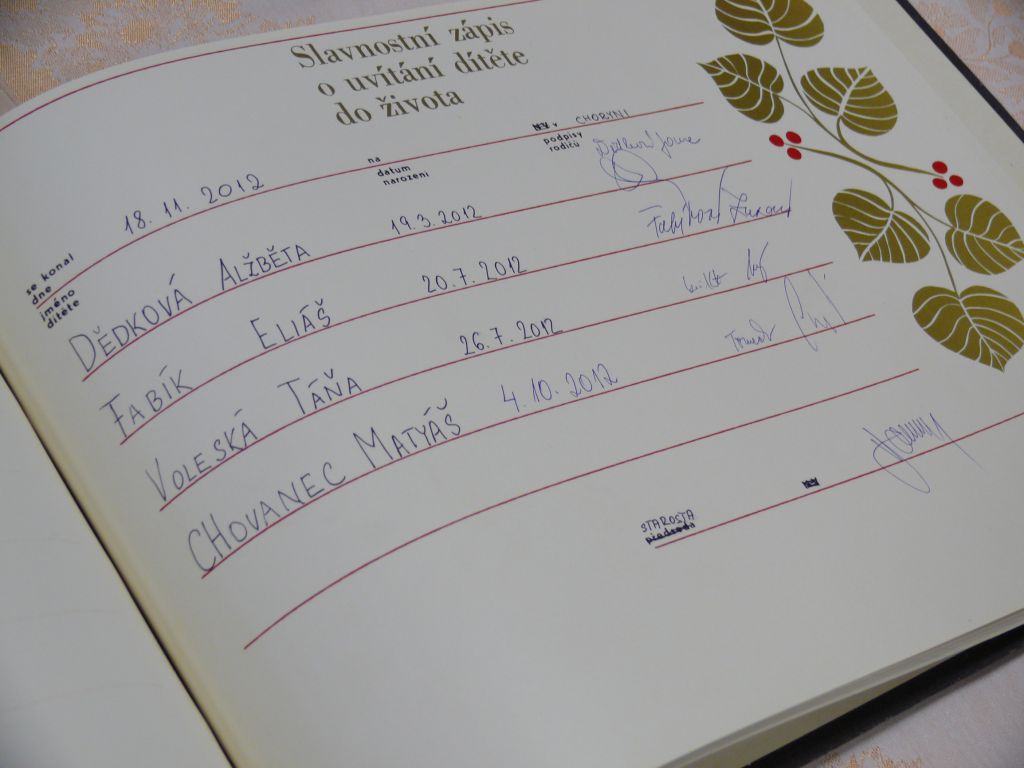 Slavnostní zápis
o uvítání dítěte
do života
se konal
dne 18. 11. 2012 na v CHORYNI
jméno
dítěte
datum
narození
podpisy
rodičů
DĚDKOVÁ ALŽBĚTA 19.3.2012
FABÍK ELIÁŠ 20.7.2012
VOLESKÁ TÁŇA 26.7.2012
CHOVANEC MATYÁŠ 4.10.2012
STAROSTA
předseda